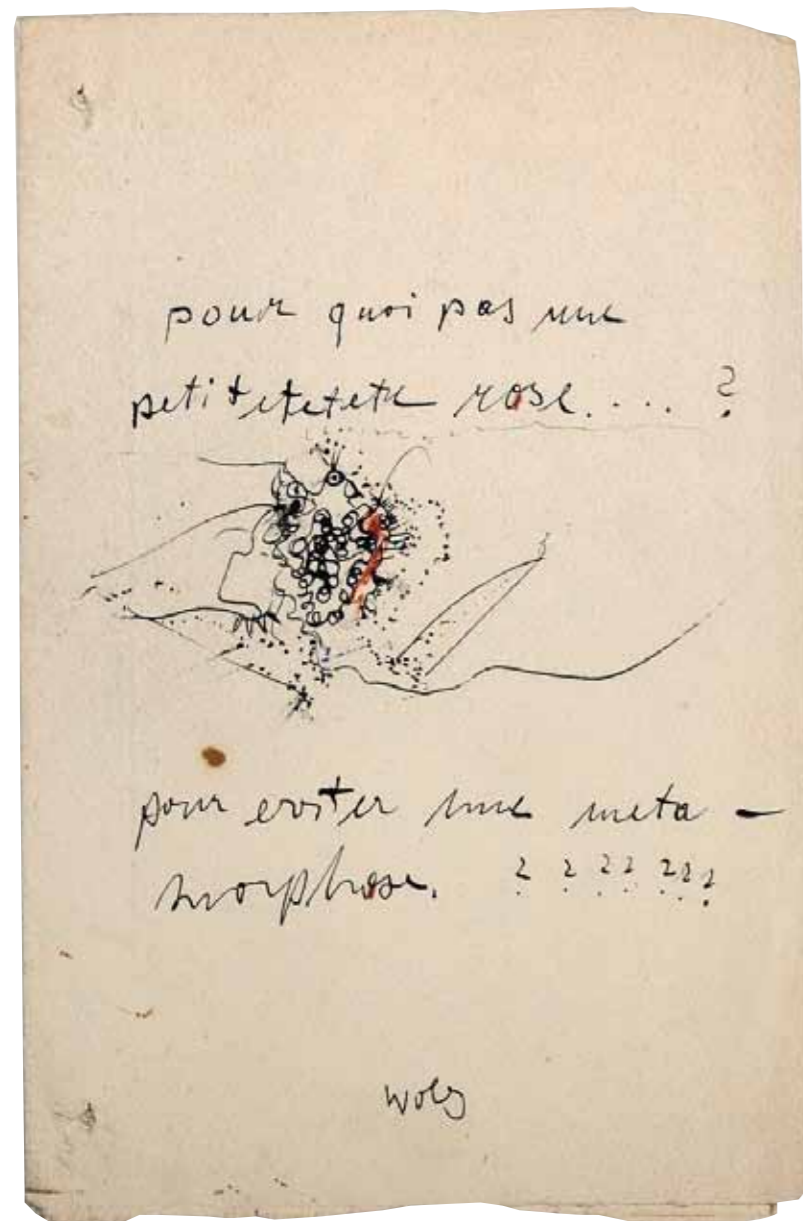 pour quoi pas une
petitetetete rose.... ?
pour eviter une meta-
morphose. ? ? ? ? ? ? ?
wols